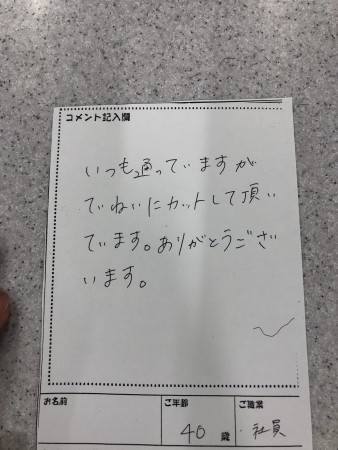 コメント記入欄
いつも通っていますが
ていねいにカットして頂い
ています。ありがとうござ
います。
お名前
ご年齢
ご職業
40 歳
社員